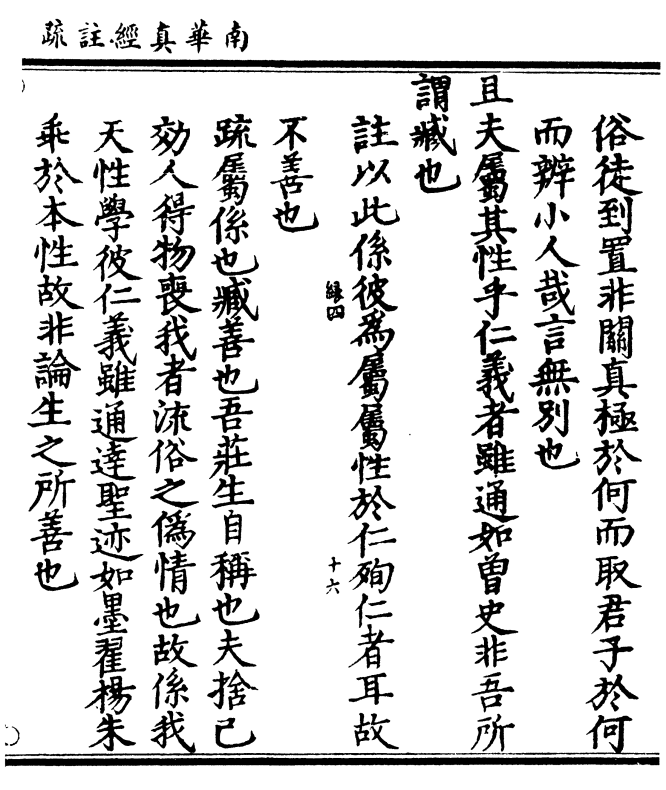 南華真經註疏
俗徒到置非關真極於何而取君子於何
而辨小人哉言無別也
且夫屬其性乎仁義者雖通如曾史非吾所
謂臧也
註以此係彼為屬屬性於仁殉仁者耳故
不善也
緣四
十六
疏屬係也臧善也吾莊生自稱也夫捨己
効人得物喪我者流俗之偽情也故係我
天性學彼仁義雖通達聖迹如墨翟楊朱
乖於本性故非論生之所善也